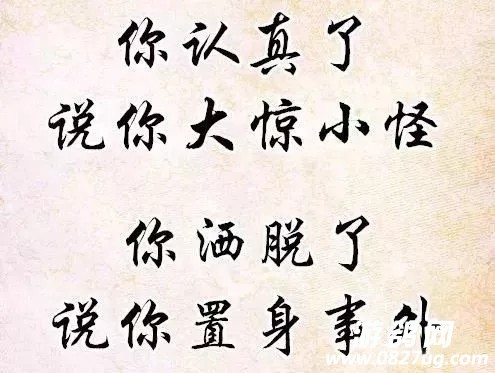 你认真了
说你大惊小怪
你洒脱了
说你置身事外
游鸽网
www.0827ug.com